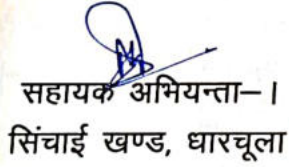 सहायक अभियन्ता–।
सिंचाई खण्ड, धारचूला